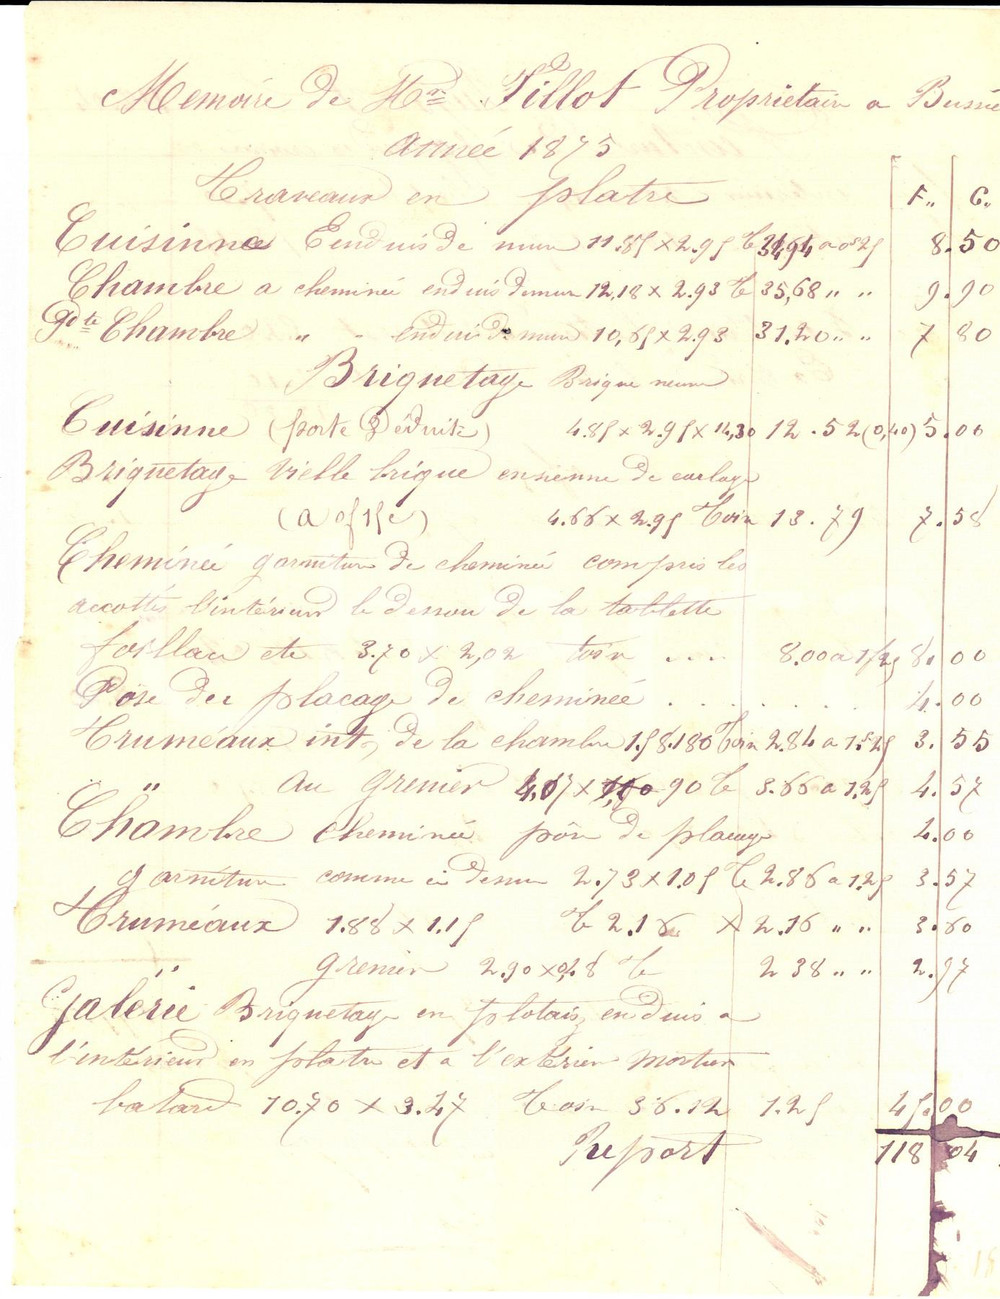 Memoire de Mr. Tillot Proprietair a Busné
année 1875
Traveaux en platre
F,, C,,
Cuisinne Enduis de mur 11.85 x 2.95 T 34,94 a 0f25 8.50
Chambre a cheminée enduis de mur 12,18 x 2.93 T 35,68 " " 9.90
Pte Chambre " " enduis de mur 10,65 x 2.93 31.20 " " 7 80
Briquetage Brique neuve
Cuisinne (porte Déduite) 4.85 x 2.95 x 14,30 12.52 (0,40) 5.00
Briquetage vielle brique ensienne de carlage
(a 0f 55c) 4.66 x 2.95 Toin 13.79 7.58
Cheminée garniture de cheminée compris les
accottés l'intérieur le dessou de la tablette
foillau etc 3.70 x 2,02 toin .... 8.00 a 1f25 8.00
Pose du placage de cheminée . . . . . . . . 4.00
Truméaux int, de la chambre 1.58.180 Toin 2.84 a 1.25 3.55
" au grenier 4,07 x 90 T 3.66 a 1.25 4.57
Chambre cheminée pôse de placage 4.00
garniture comme ci dessu 2.73 x 1.05 T 2.86 a 1.25 3.57
Truméaux 1.88 x 1.15 T 2.16 x 2.16 " " 3.60
grenier 2.90 x 0,8 T 2 38 " " 2.97
Galerie Briquetage en plotais, enduis a
l'intérieur en platre et a l'extérieur mortier
batard 10.70 x 3.47 Toin 36.12 1.25 45.00
Report 118 04